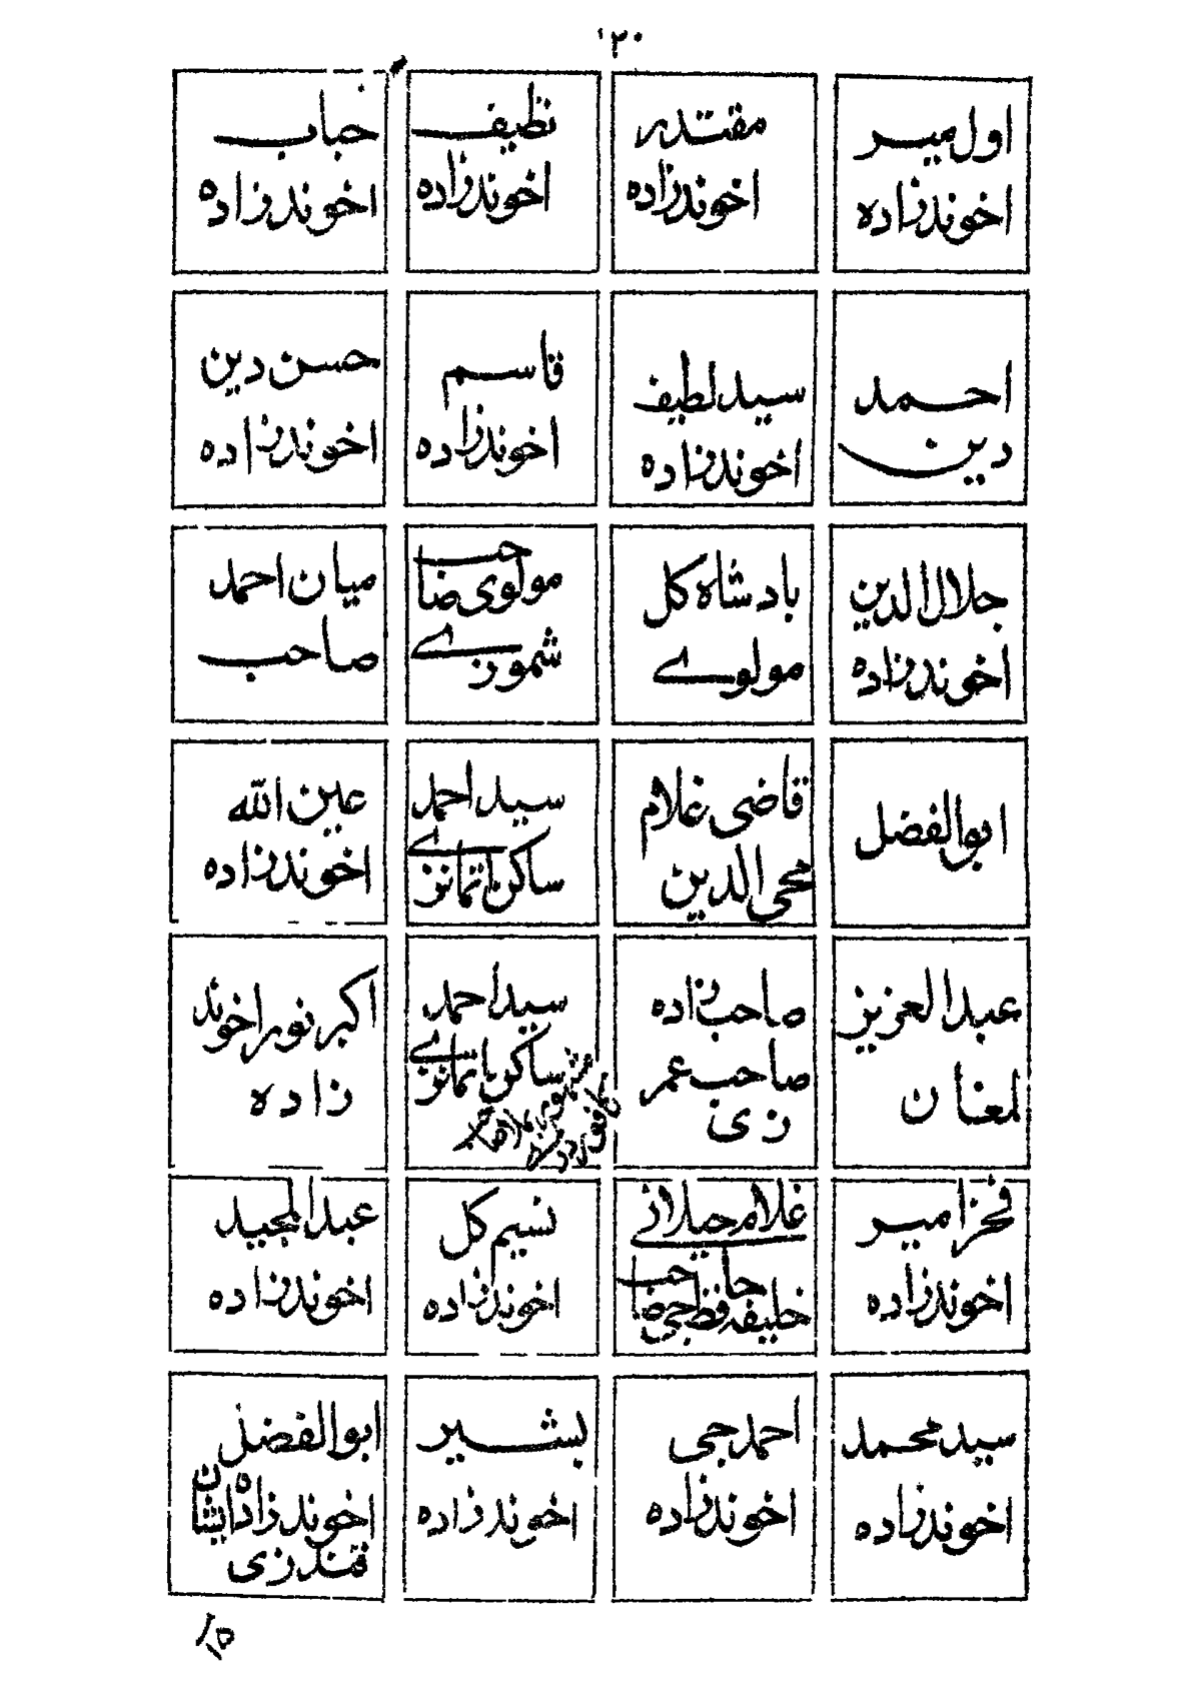 ۱۲۰
اول میر
اخوندزاده
مقتدر
اخوندزاده
نظیف
اخوندزاده
خباب
اخوندزاده
احمد
دین
سید لطیف
اخوندزاده
قاسم
اخوندزاده
حسن دین
اخوندزاده
جلال الدین
اخوندزاده
بادشاه کل
مولوے
مولوی صاحب
شموزے
میان احمد
صاحب
ابوالفضل
قاضی غلام
محی الدین
سید احمد
ساکن اتمانزے
عین الله
اخوندزاده
عبدالعزیز
لمغان
صاحبزاده
صاحب عمر
زی
سید احمد
ساکن اتمانزے
اکبر نور اخوند
زاده
فخر امیر
اخوندزاده
غلام جیلانے
خلیفه حافظ جی صاحب
نسیم کل
اخوندزاده
عبدالمجید
اخوندزاده
سید محمد
اخوندزاده
احمد جی
اخوندزاده
بشیر
اخوندزاده
ابوالفضل
اخوندزاده ایشان
قندزی